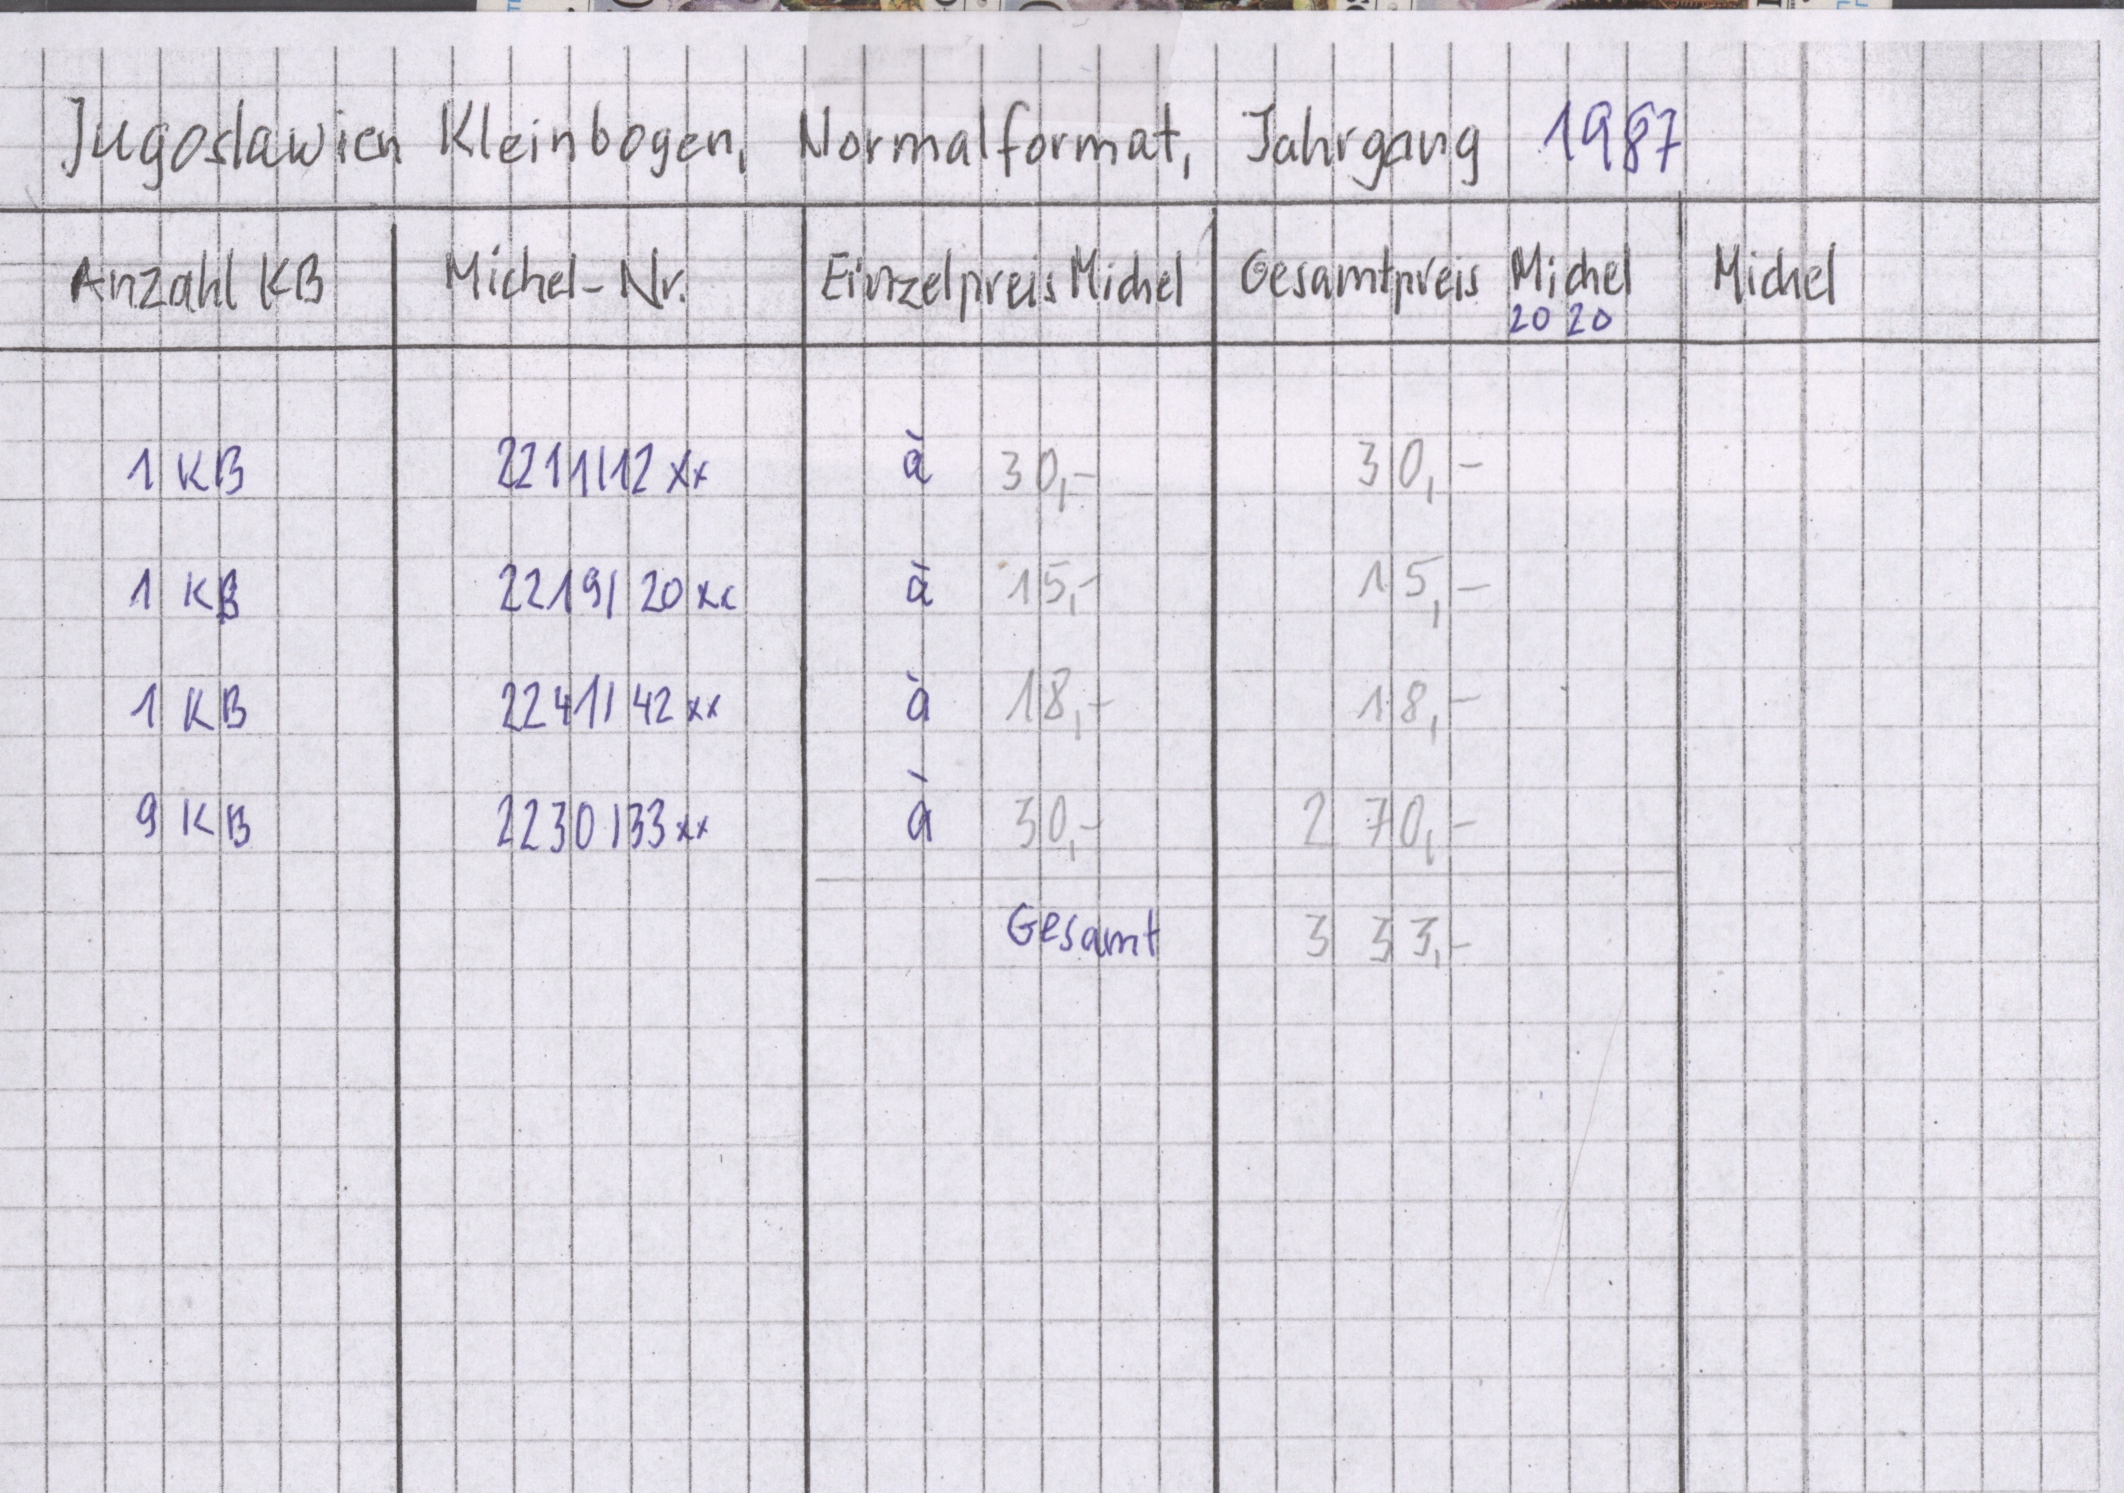 Jugoslawien Kleinbogen, Normalformat, Jahrgang 1987
Anzahl KB Michel-Nr. Einzelpreis Michel Gesamtpreis Michel Michel
2020
1 KB 2211/12 xx á 30,- 30,-
1 KB 2219/20 xx á 15,- 15,-
1 KB 2241/42 xx á 18,- 18,-
9 KB 2230/33 xx á 30,- 270,-
Gesamt 333,-